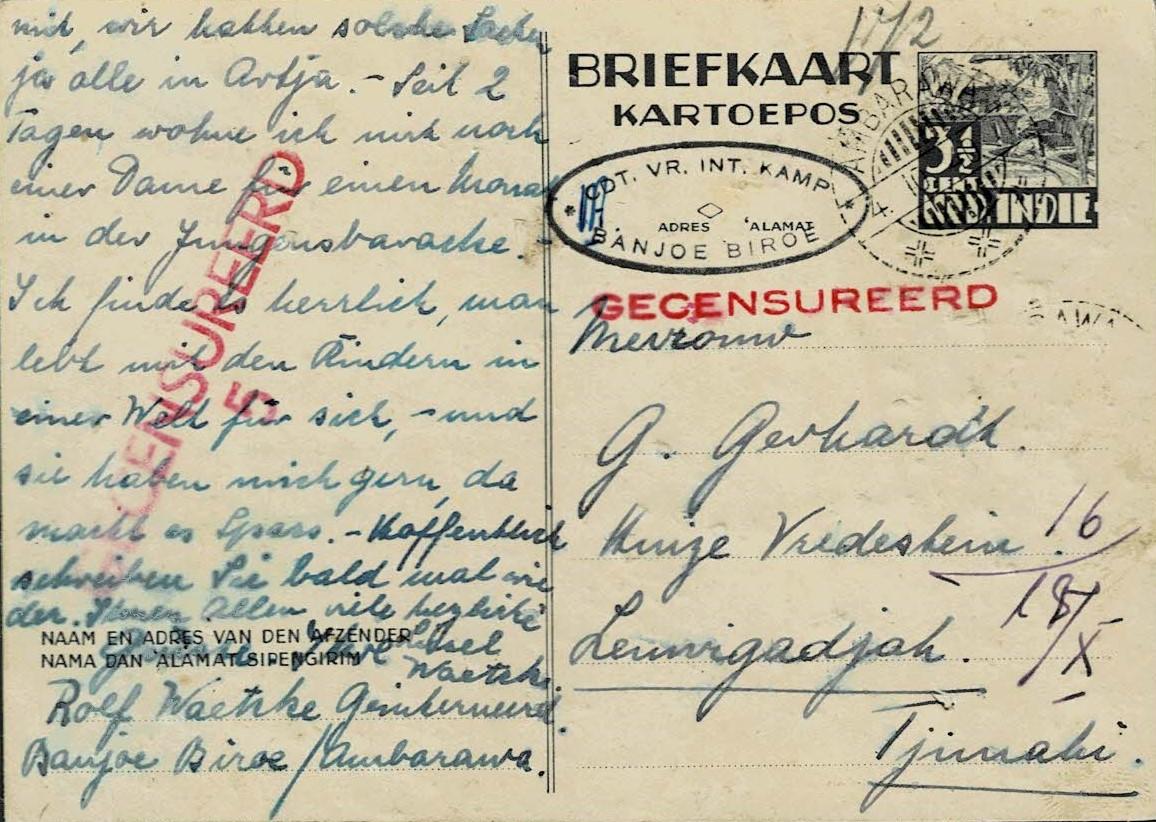 mit, wir hatten solche Sachen
ja alle in Avtja. - Seit 2
Tagen wohne ich mit noch
einer Dame für einen Monat
in der Jungensbaracke. -
Ich finde es herrlich, man
lebt mit den Kindern in
einer Welt für sich, - und
sie haben mich gern, da
macht es Spass. - Hoffentlich
schreiben Sie bald mal wie
der. Ihnen Allen viele herzliche
NAAM EN ADRES VAN DEN AFZENDER
NAMA DAN ALAMAT SIPENGIRIM
Grüsse Ihre Liesel
Waetzke.
Rolf Waetzke Geinterneerd.
Banjoe Biroe / Ambarawa.
GECENSUREERD
5
17/2
BRIEFKAART
KARTOEPOS
CDT. VR. INT. KAMP
ADRES ALAMAT
BANJOE BIROE
AMBARAWA
3½
CENT
NED. INDIE
GECENSUREERD
RAWA
Mevrouw
G. Gerhardt.
Huize Vredestein.
16
Lemigadjah.
18/X
Tjimahi.